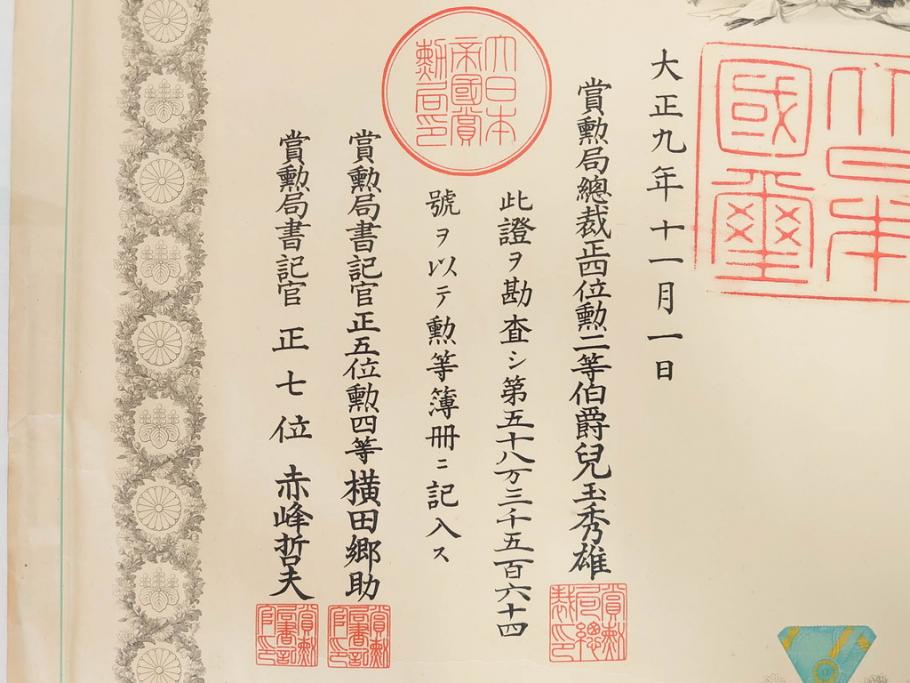 大日本國璽
大正九年十一月一日
賞勲局總裁正四位勲二等伯爵兒玉秀雄
賞勲局總裁印
大日本帝國賞勲局印
此證ヲ勘査シ第五十八万三千五百六十四
號ヲ以テ勲等簿册ニ記入ス
賞勲局書記官正五位勲四等横田郷助
賞勲局書記官印
賞勲局書記官正七位赤峰哲夫
賞勲局書記官印